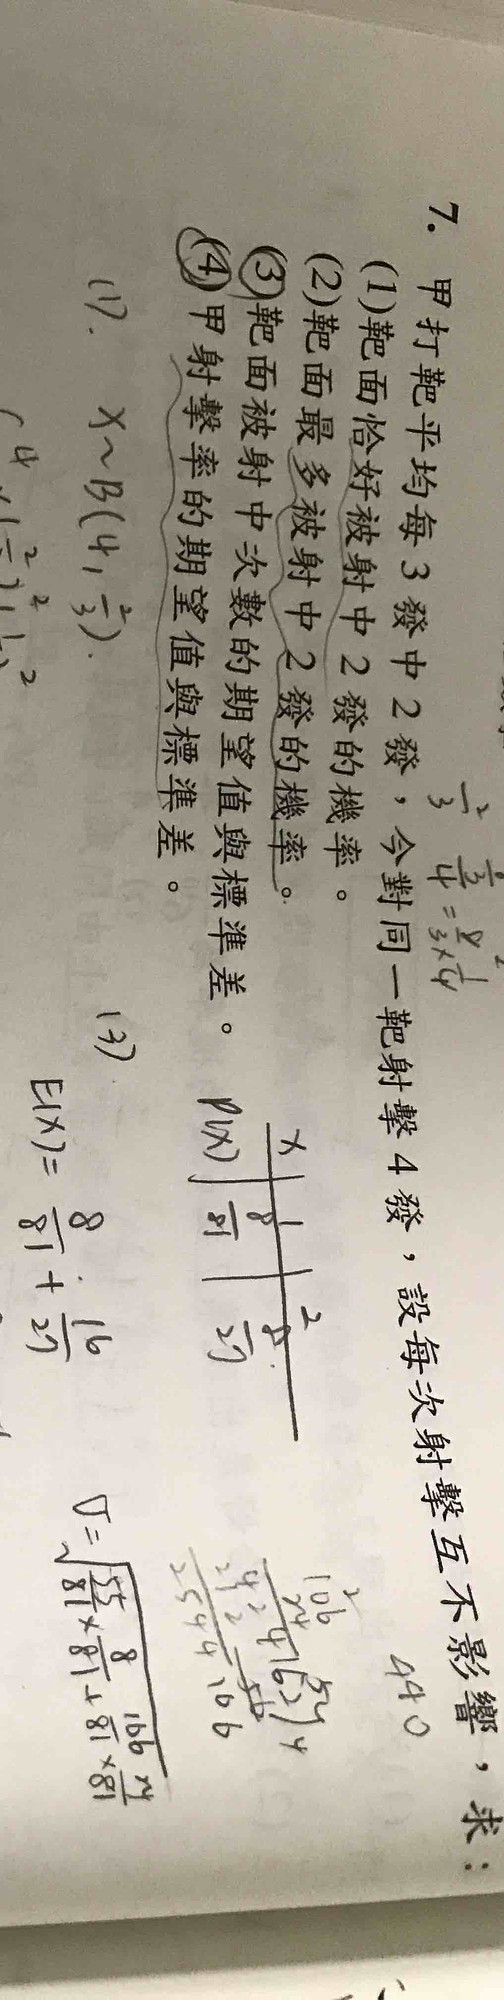 7. 甲打靶平均每3發中2發，今對同一靶射擊4發，設每次射擊互不影響，求：
(1)靶面恰好被射中2發的機率。
(2)靶面最多被射中2發的機率。
(3)靶面被射中次數的期望值與標準差。
(4)甲射擊率的期望值與標準差。
(1). X~B(4, 2/3).
(3).
X 1 2
P(X) 8/81 8/27
E(X)= 8/81 + 16/27
440